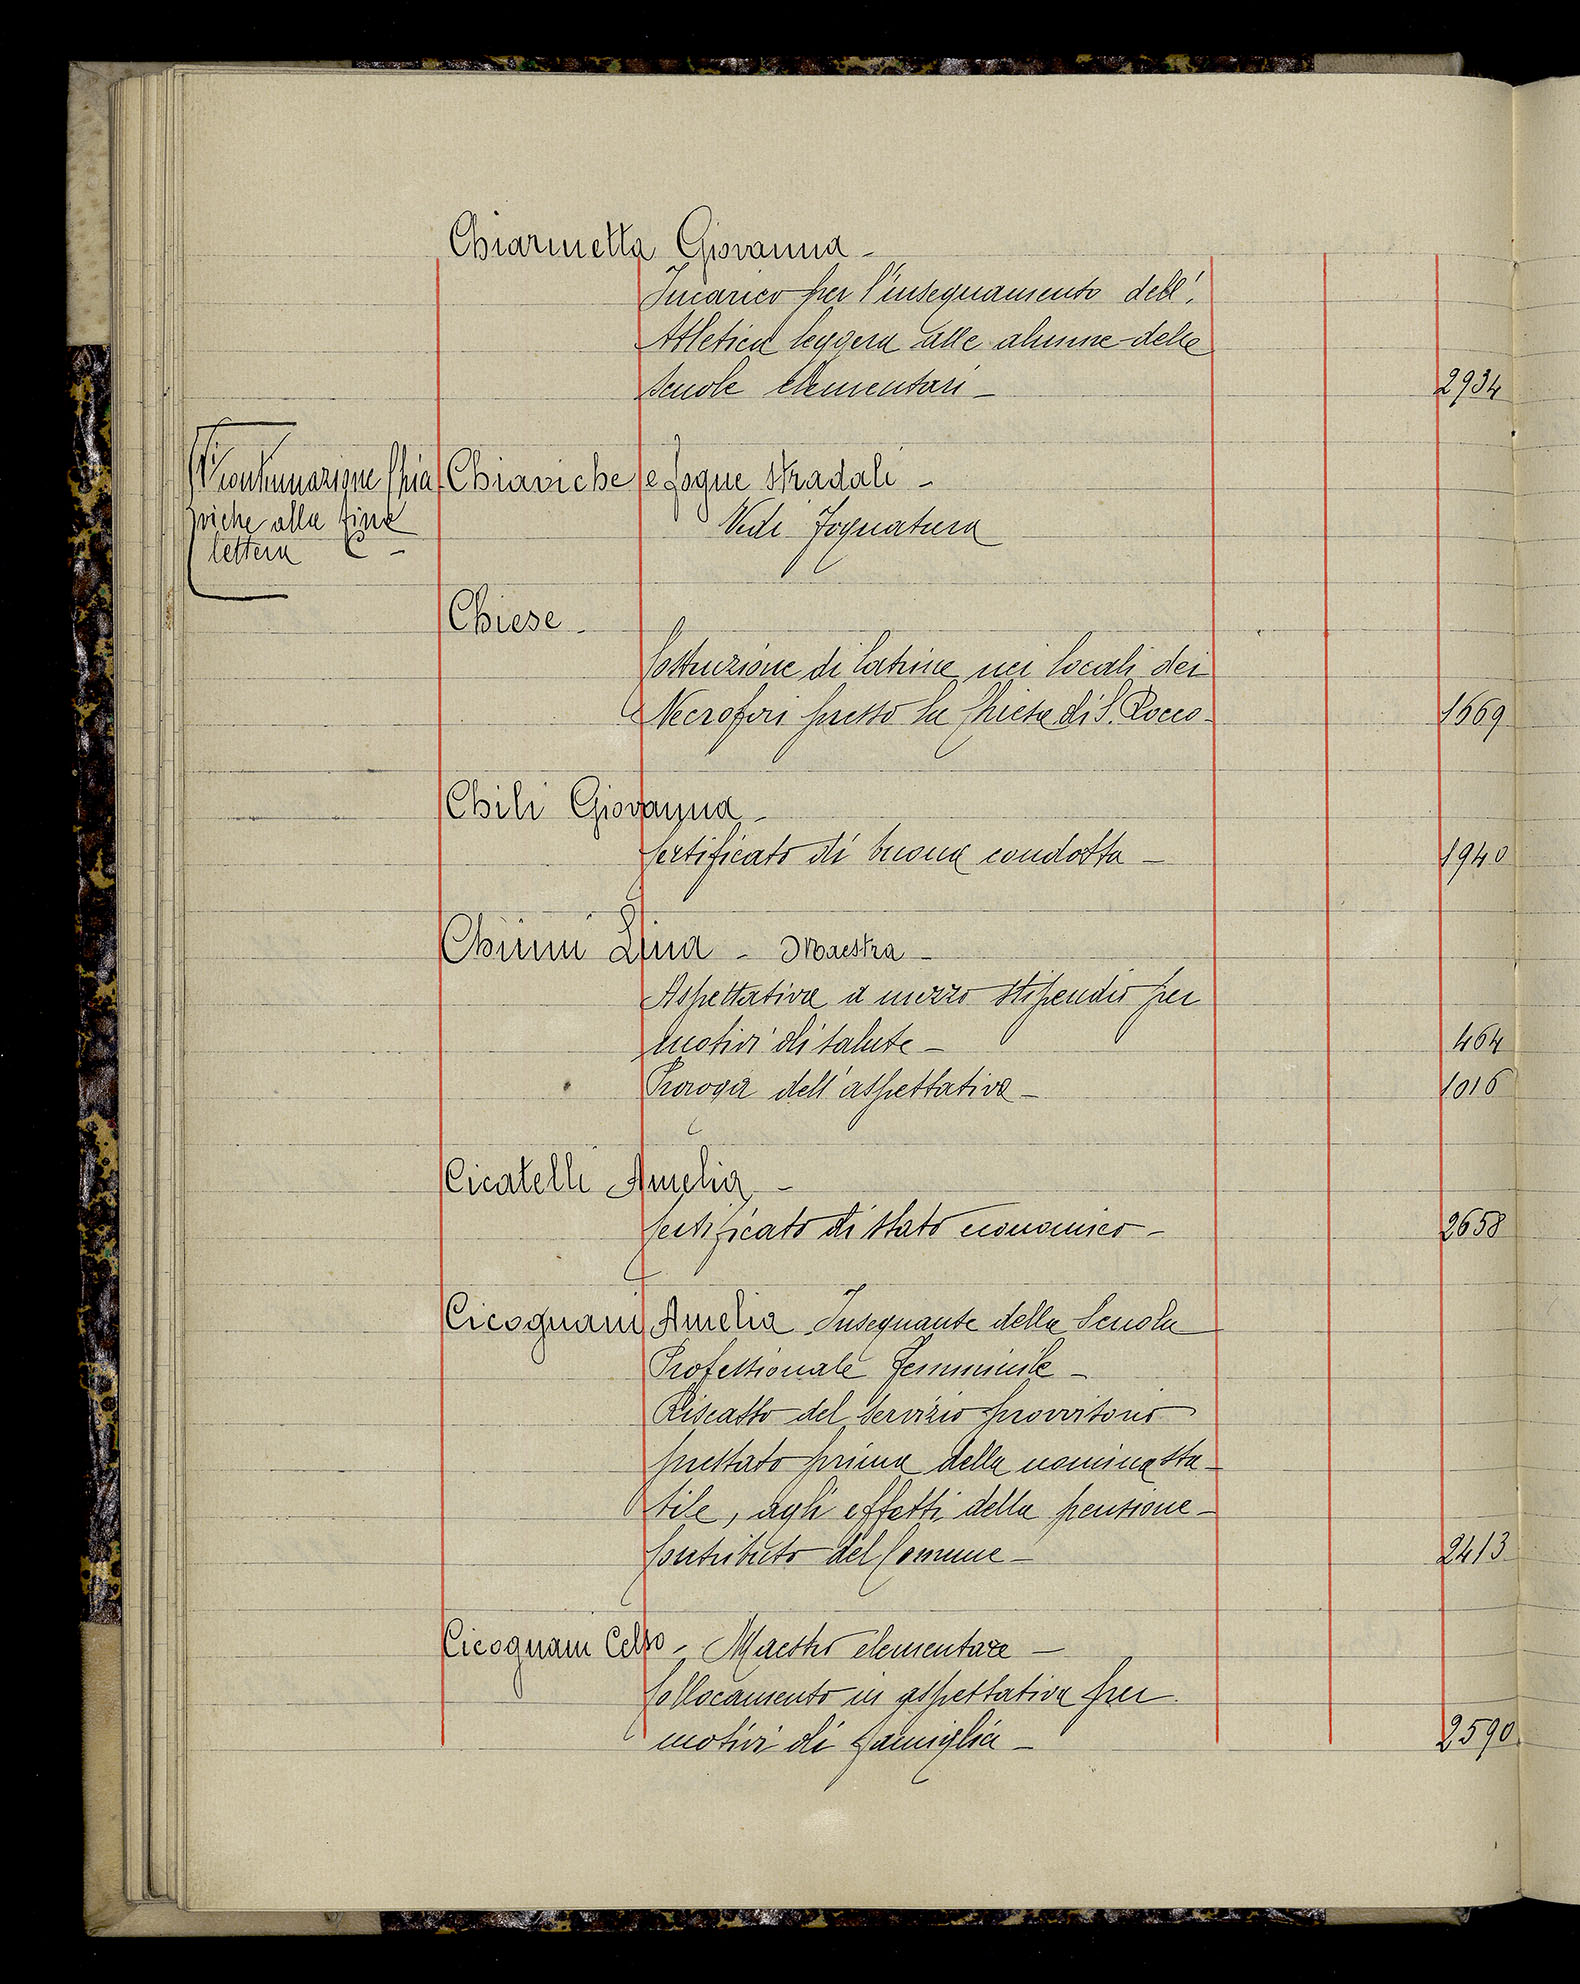 Chiarinetta Giovanna -
Incarico per l'insegnamento dell'
Atletica leggera alle alunne delle
scuole elementari - 2934
Chiaviche e fogne stradali -
Vedi Fognatura
continuazione Chia
viche alla fine
lettera C -
Chiese -
Costruzione di latrine nei locali dei
Necrofori presso la Chiesa di S. Rocco - 1669
Chili Giovanna -
Certificato di buona condotta - 1940
Lina - Maestra -
Aspettativa a mezzo stipendio per
motivi di salute - 464
Proroga dell'aspettativa - 1016
Cicatelli Amelia -
Certificato di stato economico - 2658
Cicognani Amelia Insegnante della Scuola
Professionale Femminile -
Riscatto del servizio provvisorio
prestato prima della nomina sta-
bile, agli effetti della pensione -
Contributo del Comune - 2413
Cicognani Celso - Maestro elementare -
Collocamento in aspettativa per
motivi di famiglia - 2590